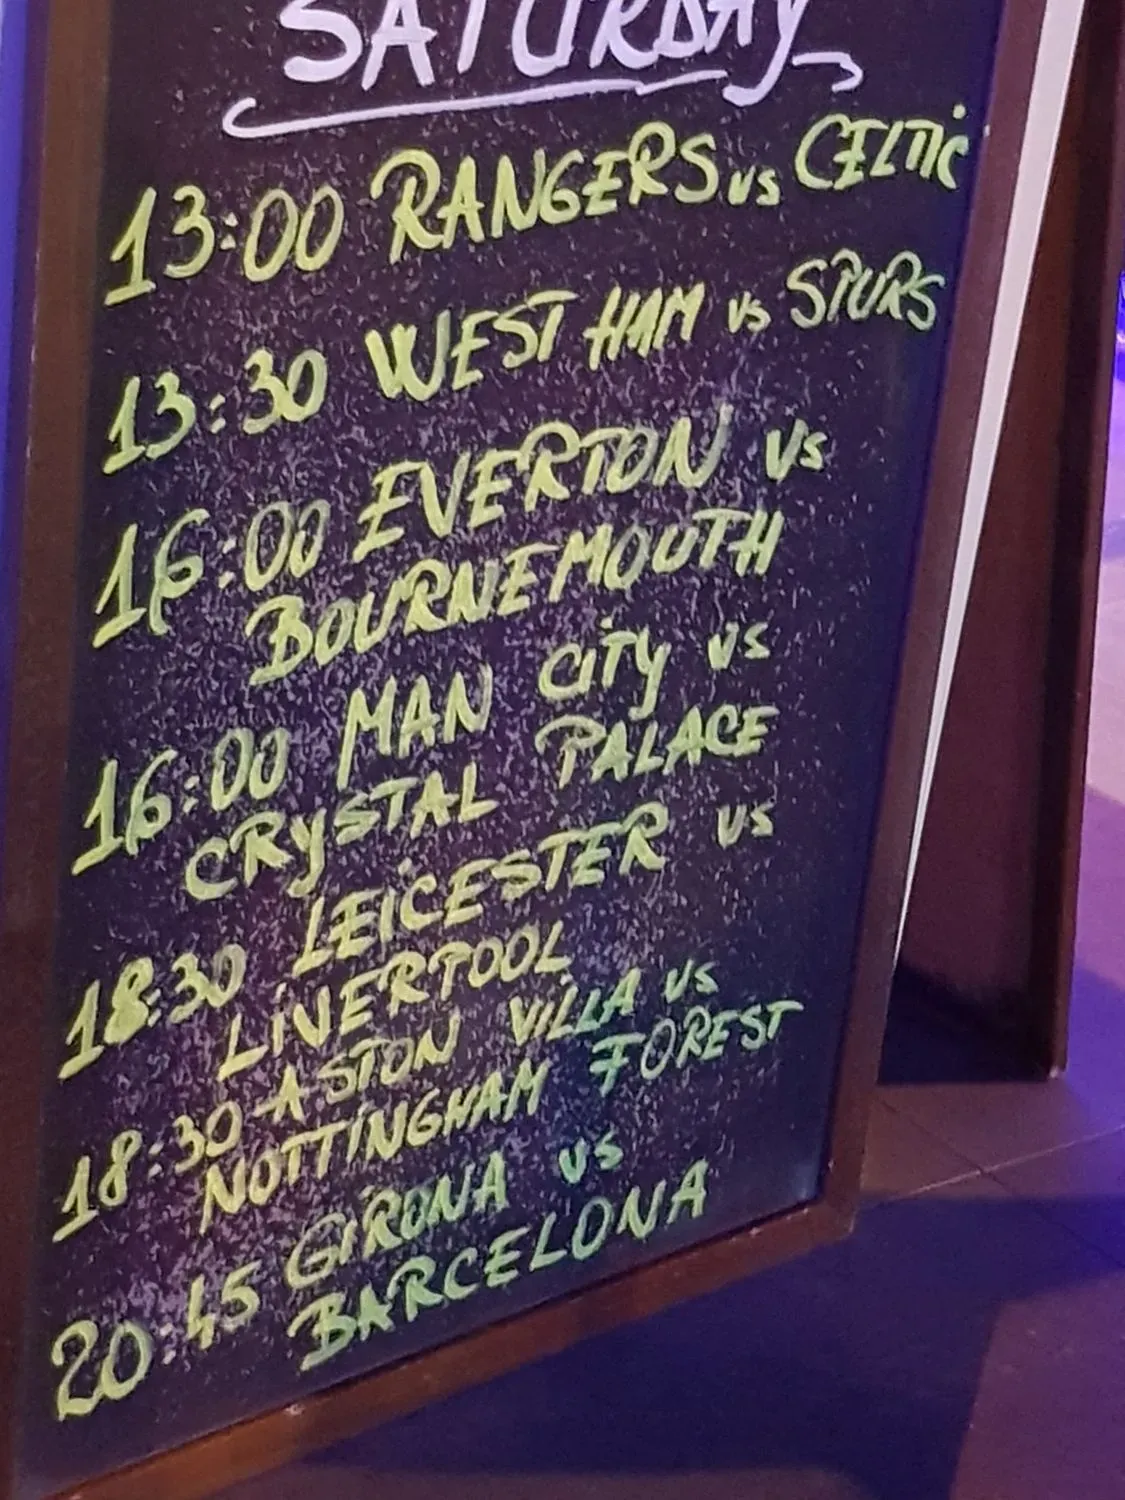 SATURDAY
13:00 RANGERS vs CELTIC
13:30 WEST HAM vs SPURS
16:00 EVERTON vs
BOURNEMOUTH
16:00 MAN CITY vs
CRYSTAL PALACE
18:30 LEICESTER vs
LIVERPOOL
18:30 ASTON VILLA vs
NOTTINGHAM FOREST
20:45 GIRONA vs
BARCELONA